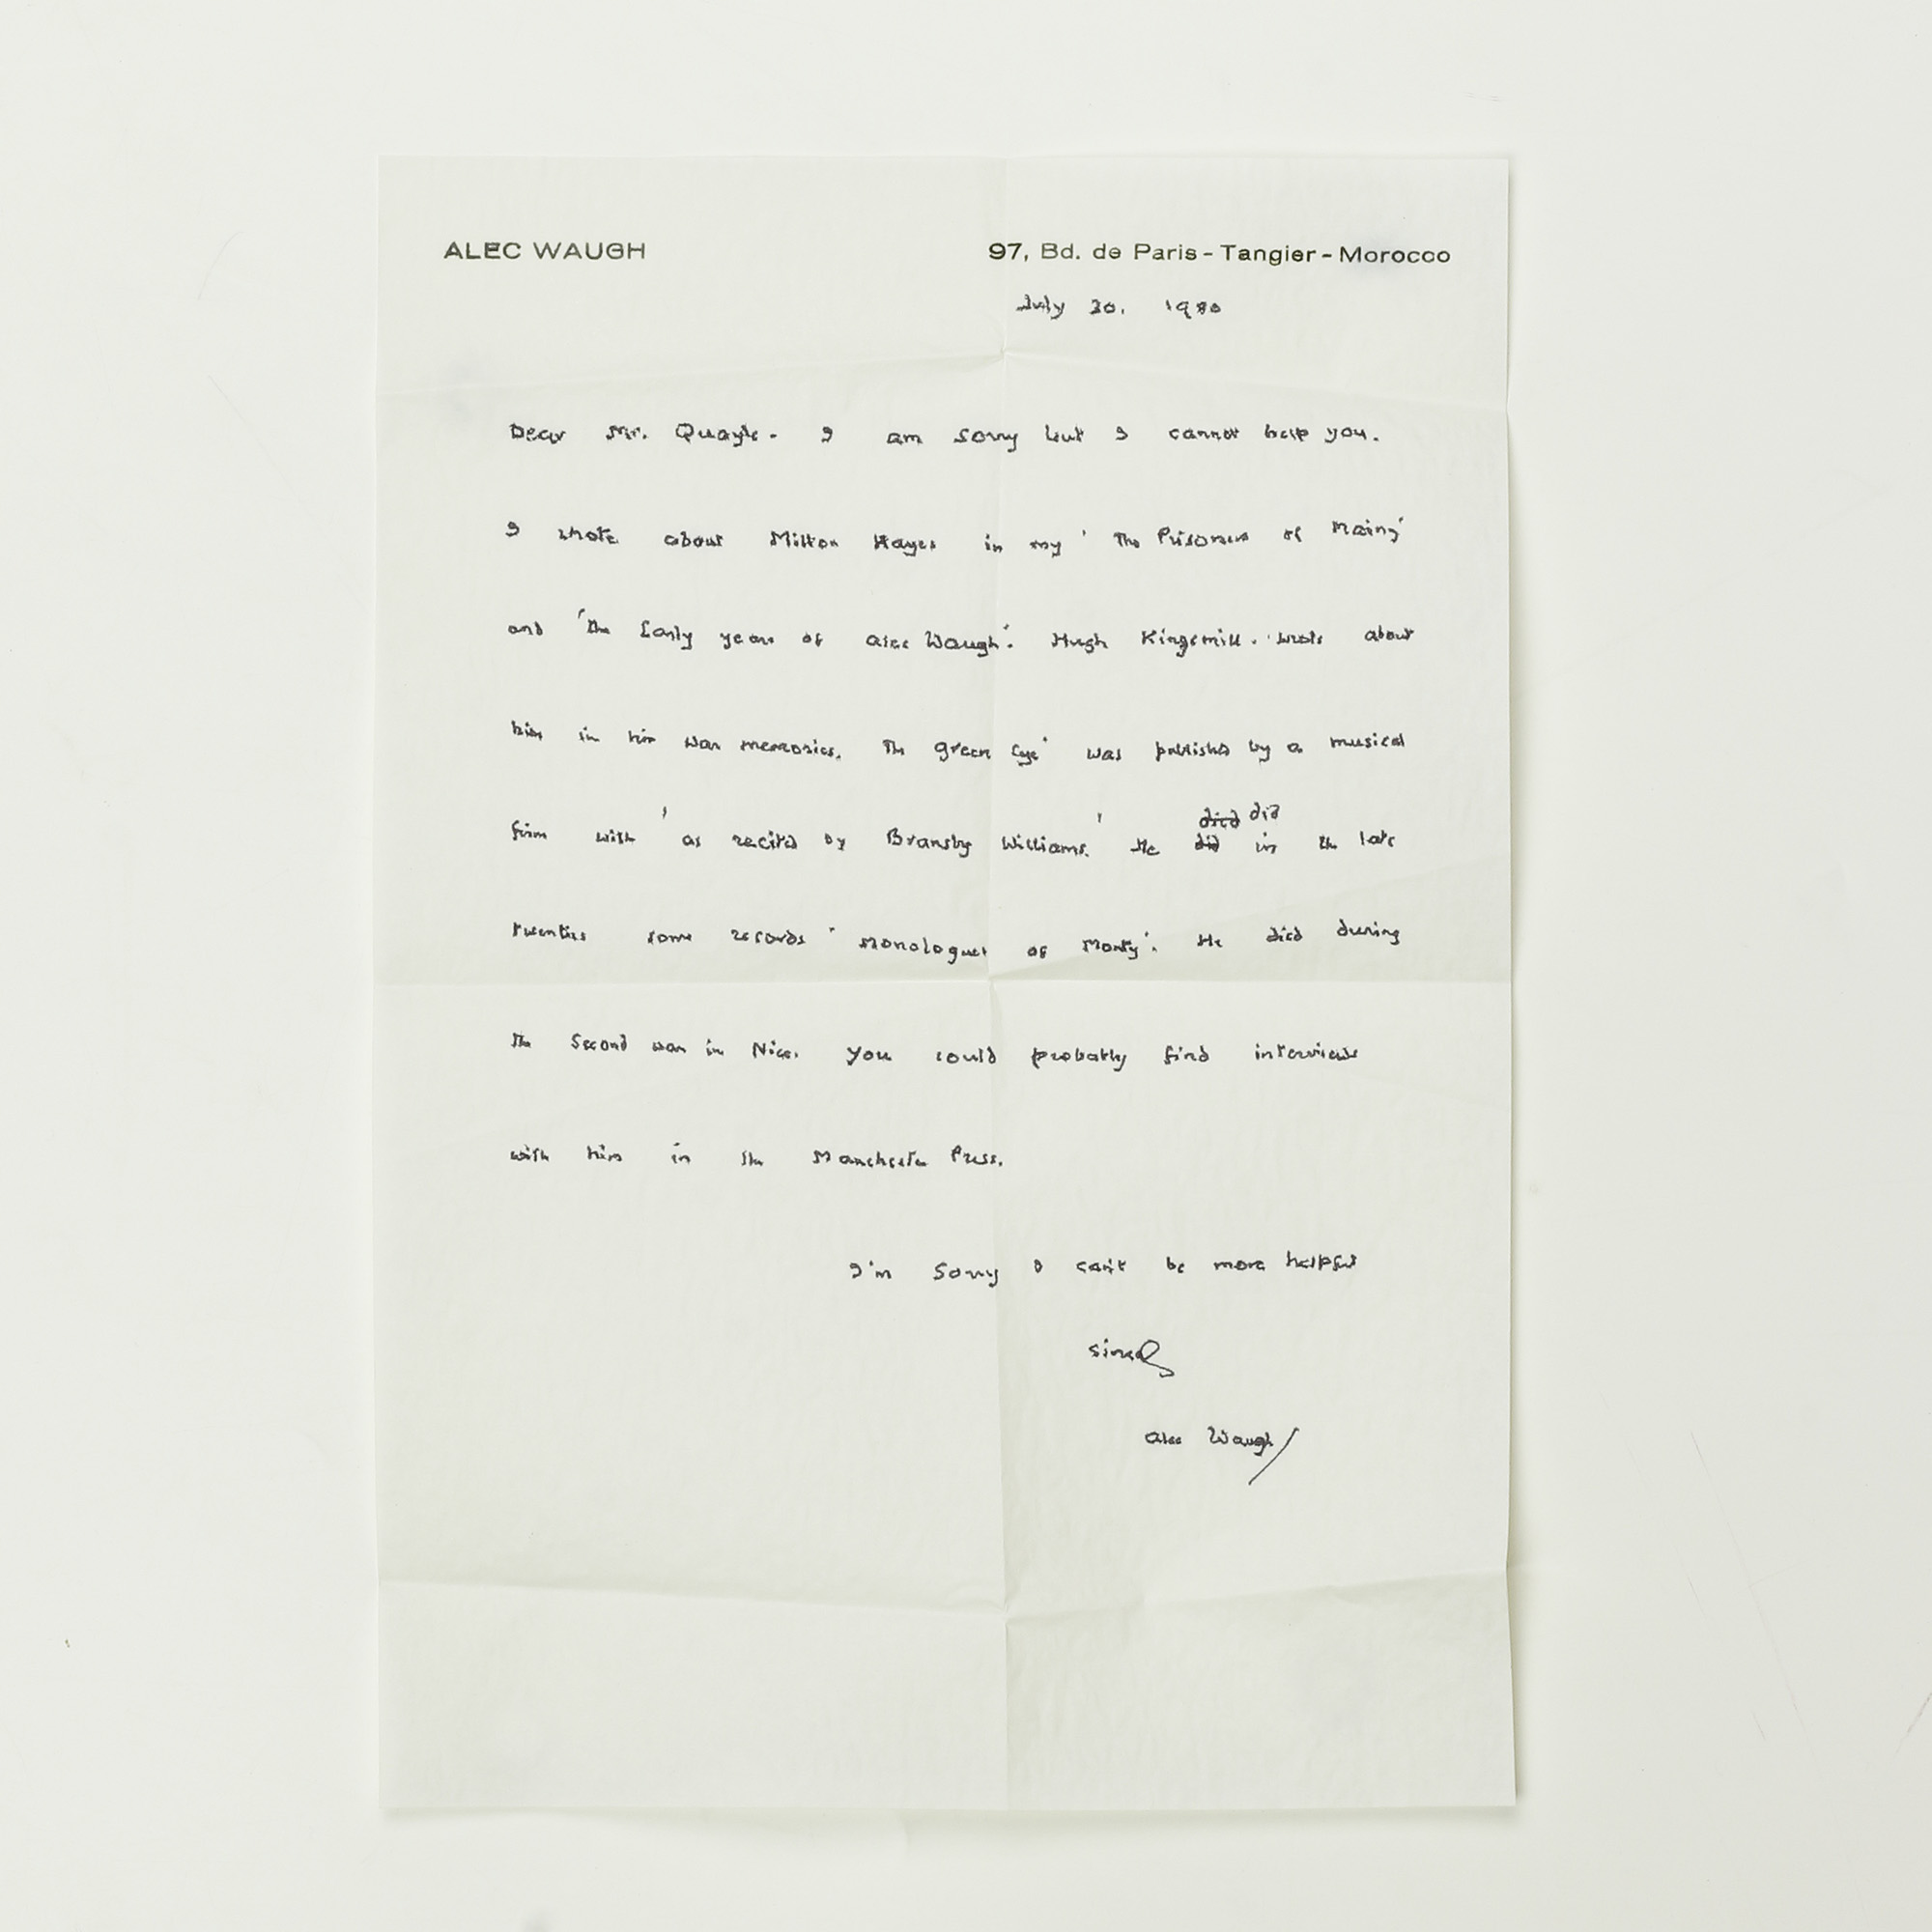 ALEC WAUGH 97, Bd. de Paris - Tangier - Morocco
July 30. 1980
Dear Mr. Quayle - I am sorry but I cannot help you.
I wrote about Milton Hayes in my ' The Prisoners of Mainz'
and 'The Early years of Alec Waugh'. Hugh Kingsmill. wrote about
him in his war memories. The Green Eye' was published by a musical
died did
firm with ' as recited by Bransby Williams.' He did in the late
twenties some records ' Monologues of Monty'. He died during
the Second war in Nice. You could probably find interviews
with him in the Manchester Press.
I'm sorry I can't be more helpful
sincerely
Alec Waugh